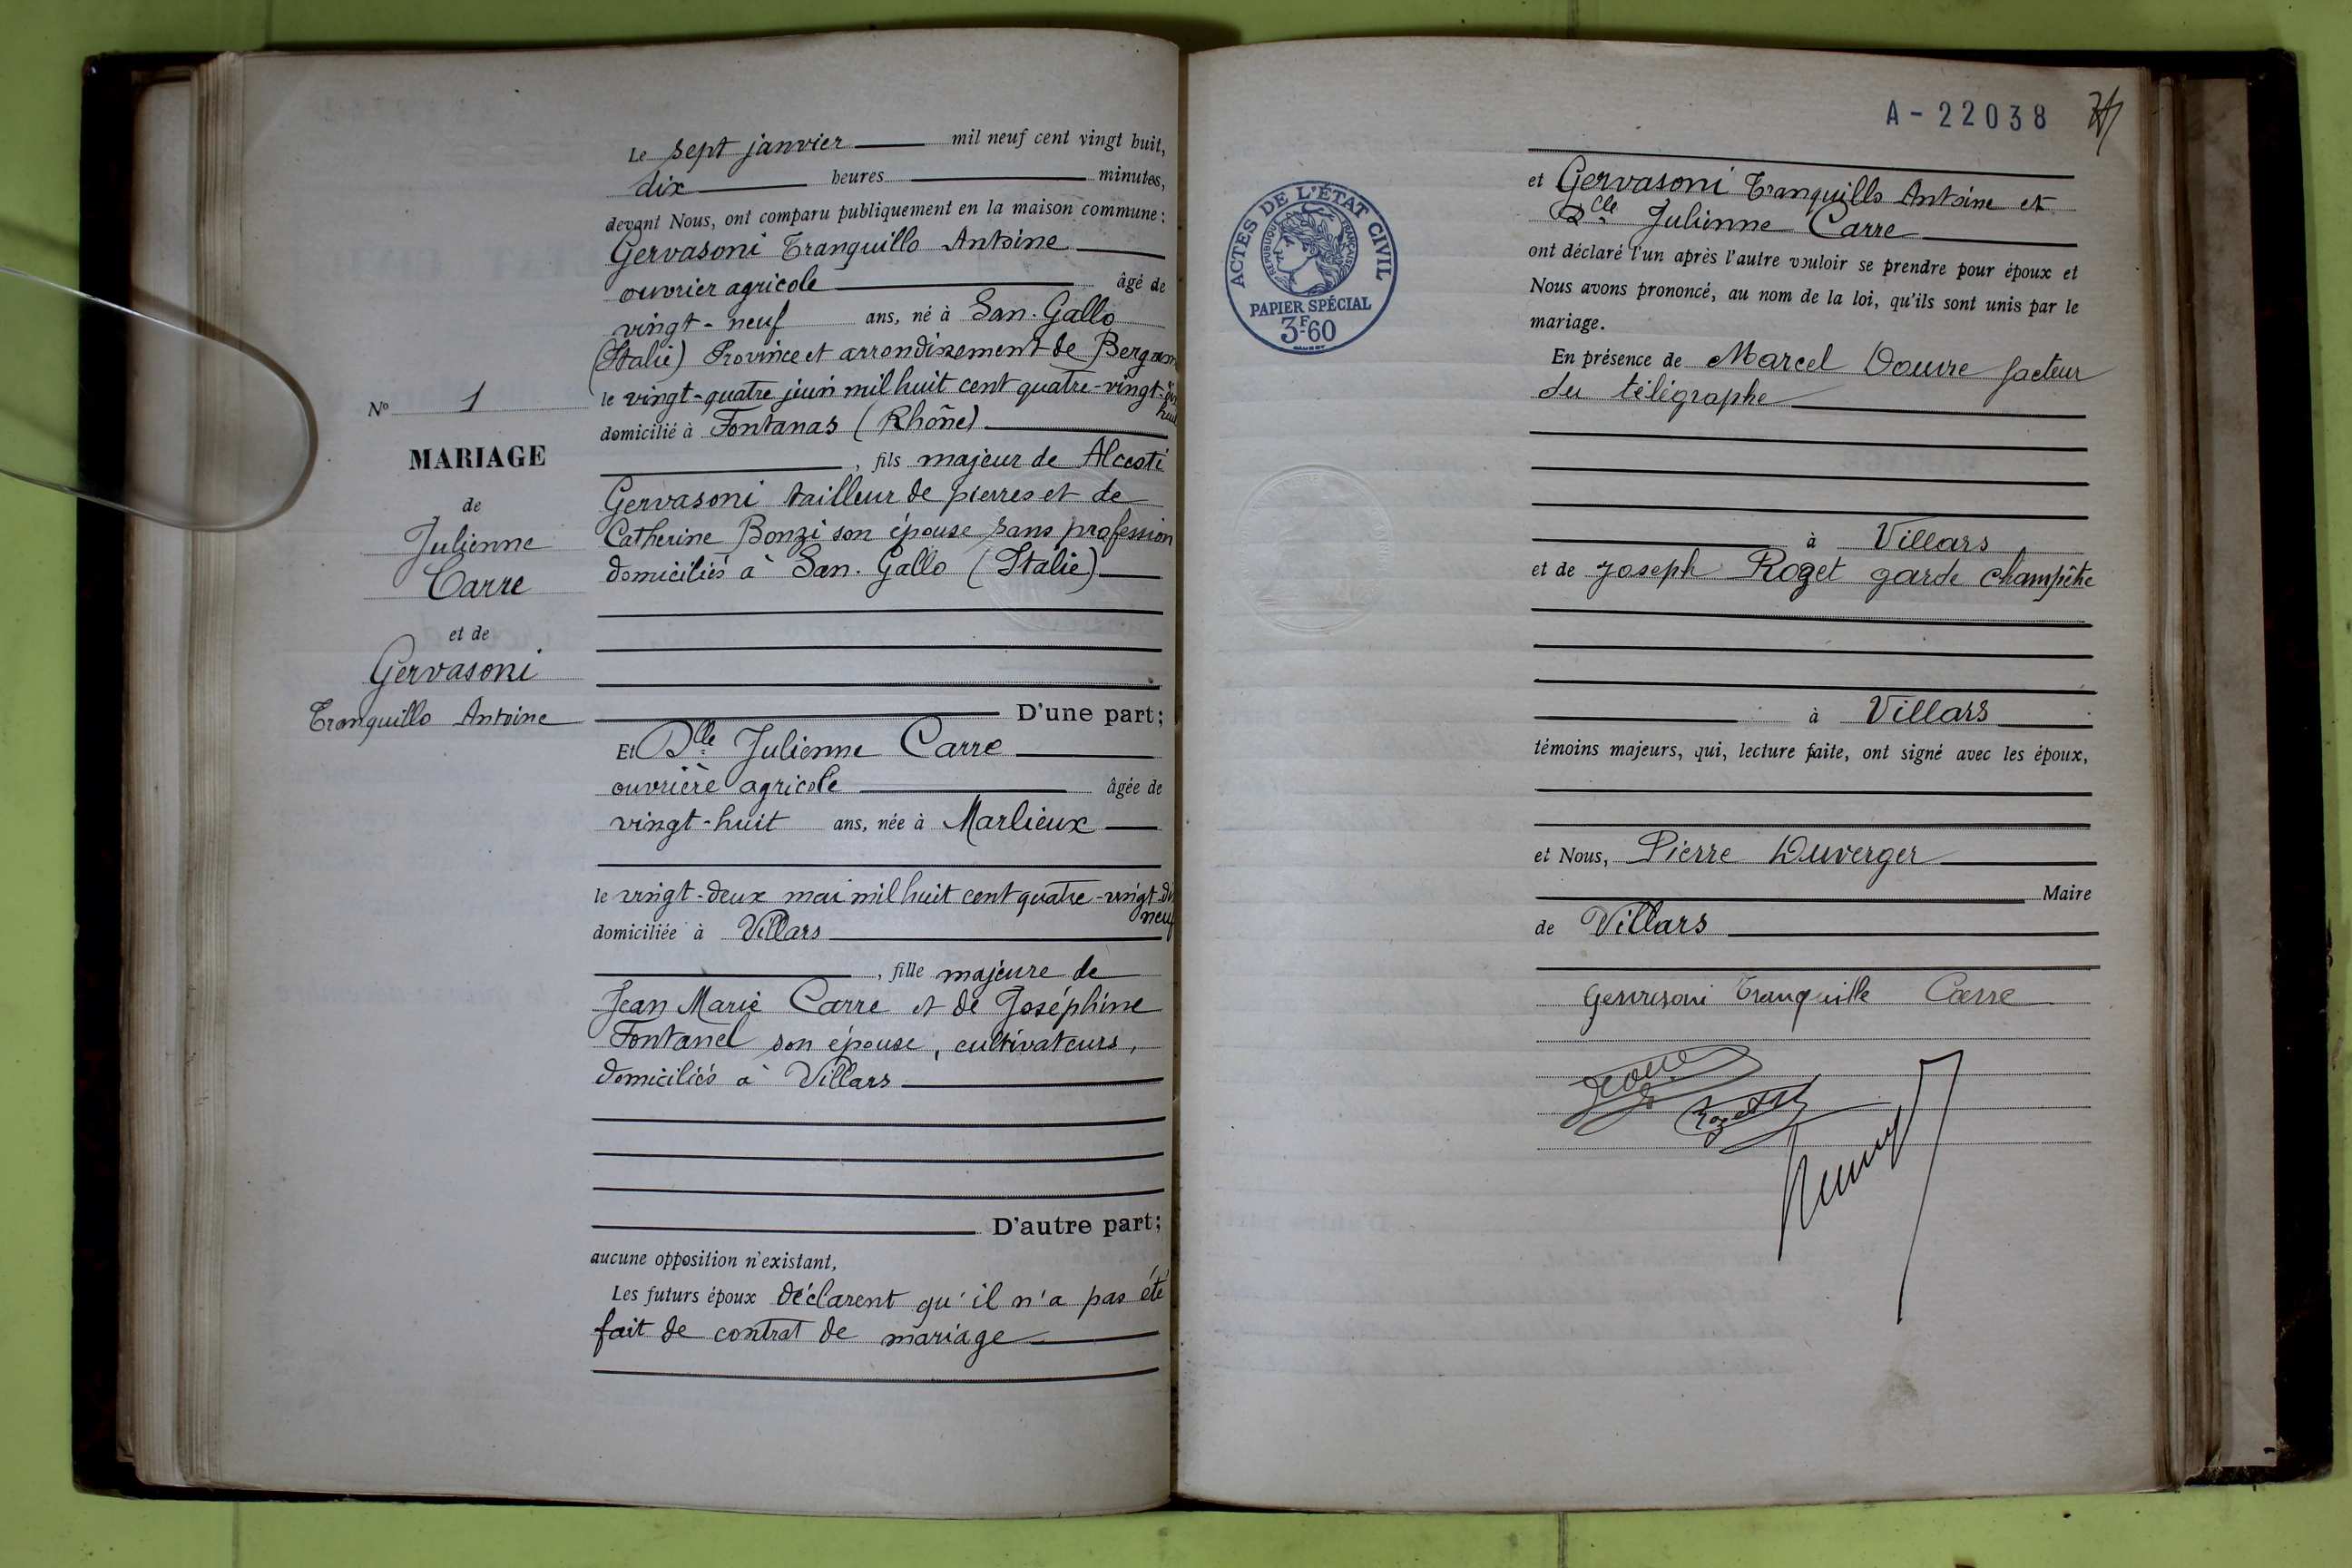 Le sept janvier mil neuf cent vingt huit,
dix heures minutes,
devant Nous, ont comparu publiquement en la maison commune :
Gervasoni Tranquillo Antoine
ouvrier agricole âgé de
vingt-neuf ans, né à San. Gallo
(Italie) Province et arrondissement de Bergam
le vingt-quatre juin mil huit cent quatre-vingt-dix
huit
domicilié à Fontanas (Rhône)
, fils majeur de Alcesti
Gervasoni tailleur de pierres et de
Catherine Bonzi son épouse sans profession
domiciliés à San. Gallo (Italie)
D'une part ;
Et Dlle Julienne Carre
ouvrière agricole âgée de
vingt-huit ans, née à Marlieux
le vingt-deux mai mil huit cent quatre-vingt-di
neuf
domiciliée à Villars
, fille majeure de
Jean Marie Carre et de Joséphine
Fontanel son épouse, cultivateurs,
domiciliés à Villars
D'autre part ;
aucune opposition n'existant,
Les futurs époux déclarent qu'il n'a pas été
fait de contrat de mariage
No 1
MARIAGE
de
Julienne
Carre
et de
Gervasoni
Tranquillo Antoine
A-22038
ACTES DE L'ÉTAT CIVIL
RÉPUBLIQUE FRANÇAISE
PAPIER SPÉCIAL
3F60
et Gervasoni Tranquillo Antoine et
Dlle Julienne Carre
ont déclaré l'un après l'autre vouloir se prendre pour époux et
Nous avons prononcé, au nom de la loi, qu'ils sont unis par le
mariage.
En présence de Marcel Douvre facteur
du télégraphe
à Villars
et de Joseph Rozet garde champêtre
à Villars
témoins majeurs, qui, lecture faite, ont signé avec les époux,
et Nous, Pierre Duverger
Maire
de Villars
Gervasoni Tranquille Carre
Rozet